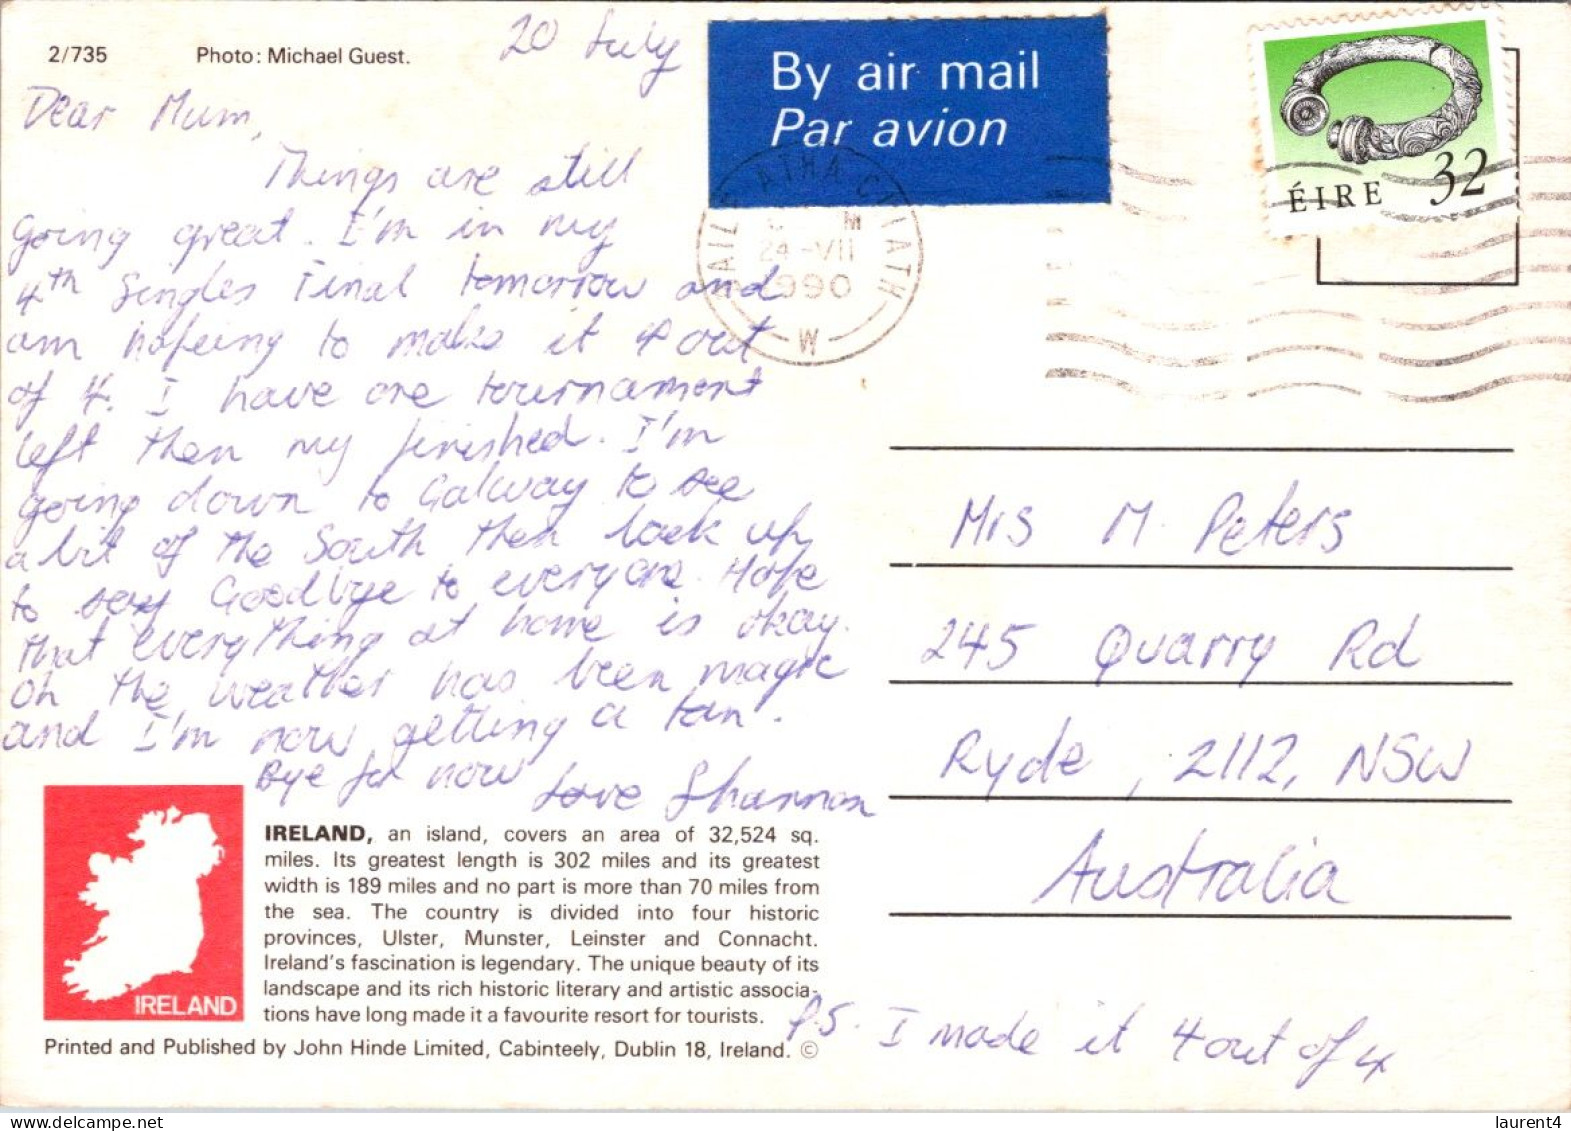 2/735
Photo: Michael Guest.
20 July
Dear Mum,
Things are still
going great. I'm in my
4th Singles Final tomorrow and
am hopeing to make it 4 out
of 4. I have one tournament
left then my finished. I'm
going down to Galway to see
a bit of the South then back up
to say Goodbye to everyone. Hope
that everything at home is okay.
Oh the weather has been magic
and I'm now getting a tan.
Bye for now
Love Shannon
IRELAND
IRELAND, an island, covers an area of 32,524 sq.
miles. Its greatest length is 302 miles and its greatest
width is 189 miles and no part is more than 70 miles from
the sea. The country is divided into four historic
provinces, Ulster, Munster, Leinster and Connacht.
Ireland's fascination is legendary. The unique beauty of its
landscape and its rich historic literary and artistic associa-
tions have long made it a favourite resort for tourists.
Printed and Published by John Hinde Limited, Cabinteely, Dublin 18, Ireland. ©
P.S. I made it 4 out of 4
By air mail
Par avion
ATHA CLIATH
24-VII
1990
W
ÉIRE 32
Mrs M. Peters
245 Quarry Rd
Ryde, 2112, NSW
Australia
www.delcampe.net
laurent4